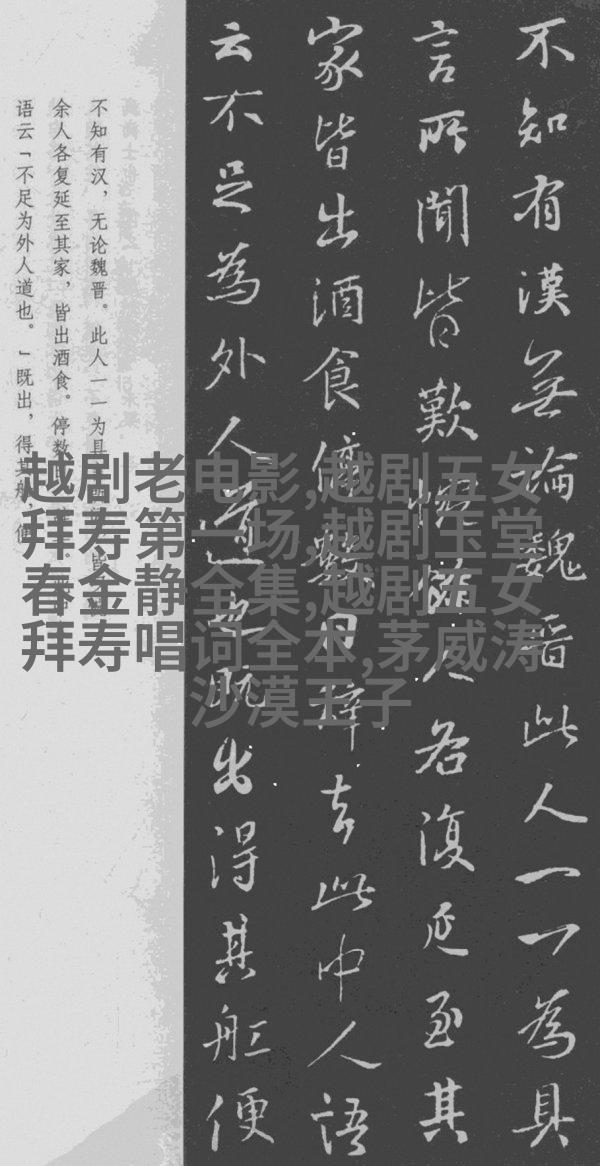 不知有漢無論魏晉此人一一為具
言所聞皆歎惋餘人各復延至其
家皆出酒食停數日辞去此中人語
云不足為外人道也既出得其舡便
不知有汉，无论魏晋。此人一一为具
余人各复延至其家，皆出酒食。停数
语云「不足为外人道也。」既出，得其船，便
越剧老电影,越剧五女
拜寿第一场,越剧玉堂
春金静全集,越剧五女
拜寿唱词全本,茅威涛
沙漠王子